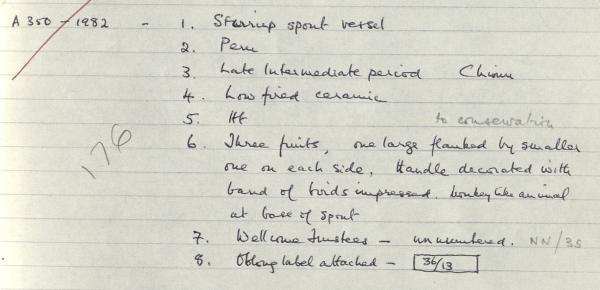 A 350 - 1982 - 1. Stirrup spout vessel
2. Peru
3. Late Intermediate period Chimu
4. Low fired ceramic
5. Ht to conservation
6. Three fruits, one large flanked by smaller
one on each side. Handle decorated with
band of birds impressed. Monkey like animal
at base of spout
176
7. Wellcome Trustees - unnumbered. NN/35
8. Oblong label attached - 36/13